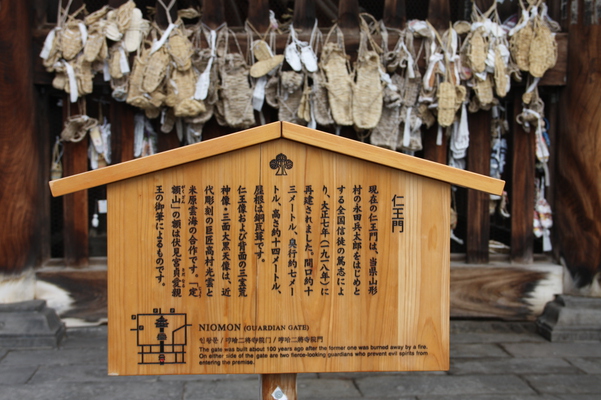 仁王門
現在の仁王門は、当県山形
村の永田兵太郎をはじめと
する全国信徒の篤志によ
り、大正七年(一九一八年)に
再建されました。間口約十
三メートル、奥行約七メー
トル、高さ約十四メートル、
屋根は銅瓦葺です。
仁王像および背面の三宝荒
神像・三面大黒天像は、近
代彫刻の巨匠高村光雲と
米原雲海の合作です。「定
額山」の額は伏見宮貞愛親
王の御筆によるものです。
NIOMON (GUARDIAN GATE)
인왕문 / 哼哈二將寺院門 / 哼哈二将寺院门
The gate was built about 100 years ago after the former one was burned away by a fire.
On either side of the gate are two fierce-looking guardians who prevent evil spirits from
entering the premise.